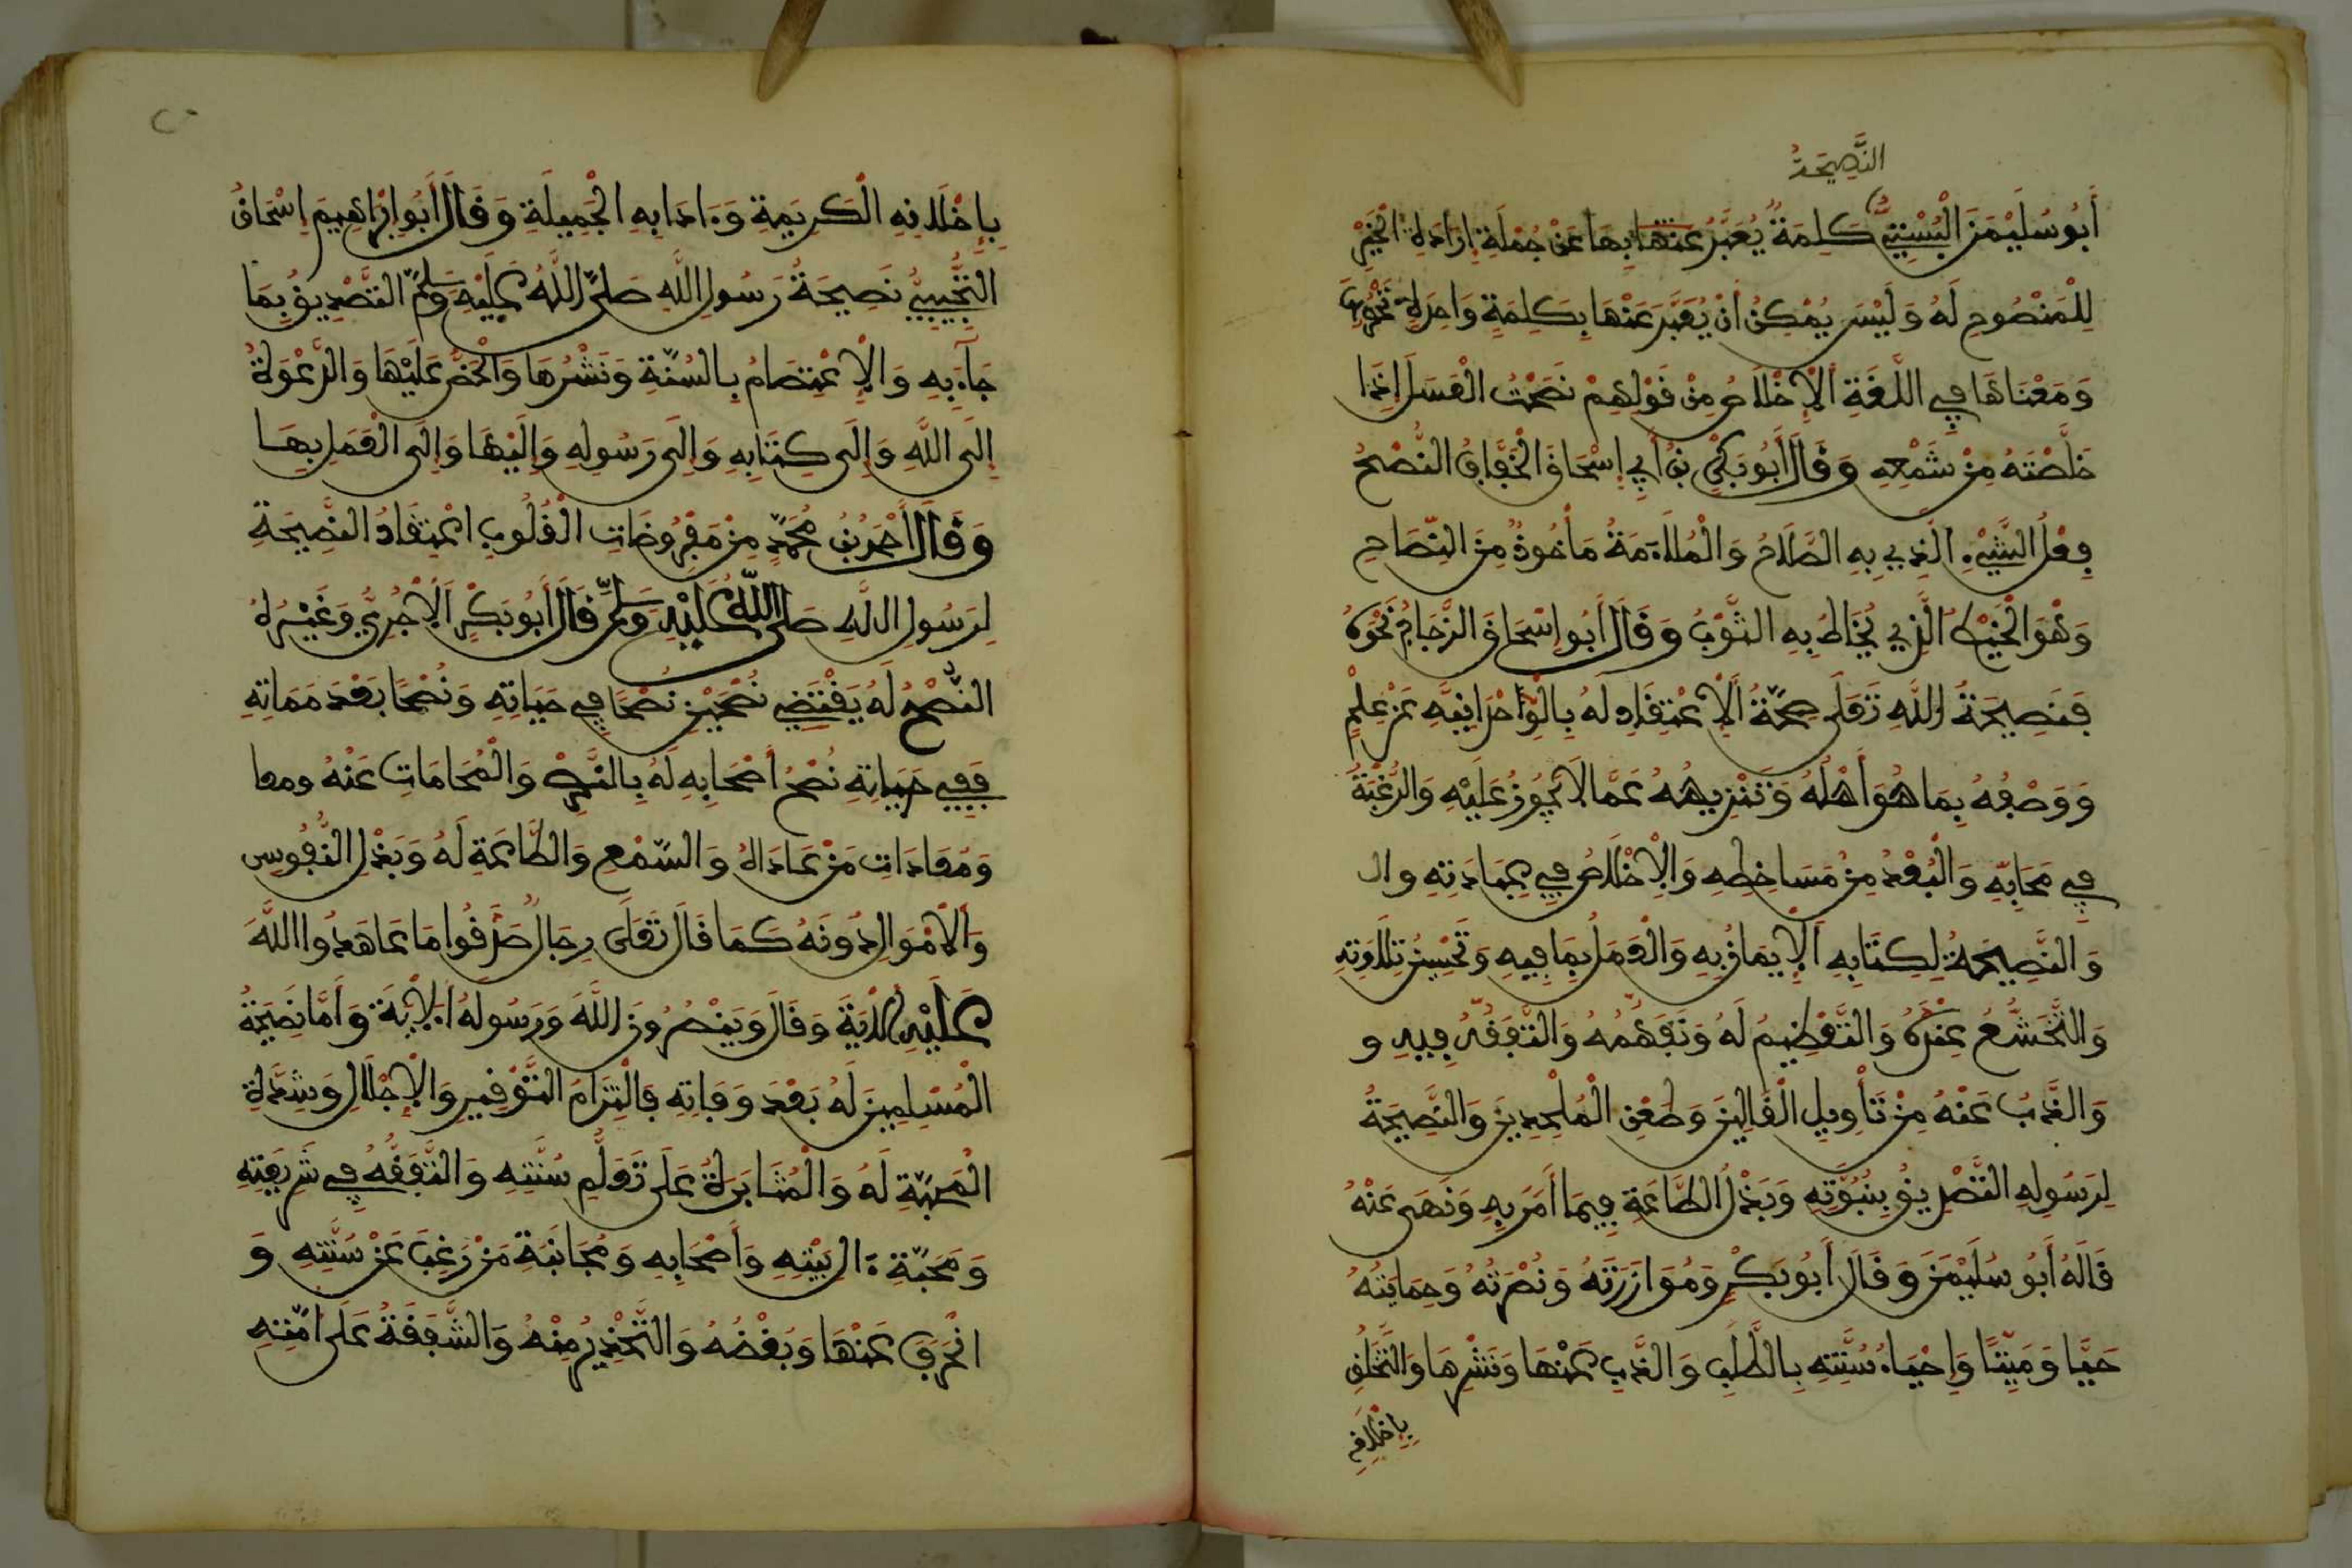 النَّصِيحَةُ
أَبُو سُلَيْمَنَ الْبُسْتِيُّ كَلِمَةٌ يُعَبَّرُ عنها بِهَا عَنْ جُمْلَةِ إِرَادَةِ الْخَيْرِ
لِلْمَنْصُوحِ لَهُ وَلَيْسَ يُمْكِنُ أَنْ يُعَبَّرَ عَنْهَا بِكَلِمَةٍ وَاحِدَةٍ تَحْصُرُهَا
وَمَعْنَاهَا فِي اللُّغَةِ الْإِخْلَاصُ مِنْ قَوْلِهِمْ نَصَحْتُ الْعَسَلَ إِذَا
خَلَّصْتَهُ مِنْ شَمْعِهِ وَقَالَ أَبُو بَكْرِ بْنُ أَبِي إِسْحَاقَ الْخَفَّافُ النُّصْحُ
فِعْلُ الشَّيْءِ الَّذِي بِهِ الصَّلَاحُ وَالْمُلَاءَمَةُ مَأْخُوذٌ مِنَ النِّصَاحِ
وَهْوَ الْخَيْطُ الَّذِي يُخَاطُ بِهِ الثَّوْبُ وَقَالَ أَبُو إِسْحَاقَ الزَّجَّاجُ نَحْوَهُ
فَنَصِيحَةُ اللَّهِ تَعَلَى صِحَّةُ الْإِعْتِقَادِ لَهُ بِالْوَاحْدَانِيَّهِ عَنْ عِلْمٍ
وَوَصْفُهُ بِمَا هُوَ أَهْلُهُ وَتَنْزِيهُهُ عَمَّا لَا يَجُوزُ عَلَيْهِ وَالرُّغْبَةُ
فِي مَحَابِّهِ وَالْبُعْدُ مِنْ مَسَاخِطِهِ وَالْإِخْلَاصُ فِي عِبَادَتِهِ وال
وَالنَّصِيحَةُ لِكِتَابِهِ الْإِيمَانُ بِهِ وَالْعَمَلُ بِمَا فِيهِ وَتَحْسِينُ تِلَاوَتِهِ
وَالتَّخَشُّعُ عِنْدَهُ وَالتَّعْظِيمُ لَهُ وَتَفَهُّمُهُ وَالتَّفَقُّهُ فِيهِ و
وَالذَّبُّ عَنْهُ مِنْ تَأْوِيلِ الْغَالِينَ وَطَعْنِ الْمُلْحِدِينَ وَالنَّصِيحَةُ
لِرَسُولِهِ التَّصْدِيقُ بِنُبُوَّتِهِ وَبَذْلُ الطَّاعَةِ فِيمَا أَمَرَ بِهِ وَنَهَى عَنْهُ
قَالَهُ أَبُو سُلَيْمَنَ وَقَالَ أَبُو بَكْرٍ وَمُوَازَرَتُهُ وَنُصْرَتُهُ وَحِمَايَتُهُ
حَيًّا وَمَيِّتًا وَإِحْيَاءُ سُنَّتِهِ بِالطَّلَبِ وَالذَّبِّ عَنْهَا وَنَشْرِهَا وَالتَّخَلُّقِ
بِإِخْلَاقِهِ
بِإِخْلَاقِهِ الْكَرِيمَةِ وَءَادَابِهِ الْجَمِيلَةِ وَقَالَ أَبُو إِبْرَاهِيمَ إِسْحَاقُ
التُّجِيبِيُّ نَصِيحَةُ رَسُولِ اللَّهِ صَلَّى اللَّهُ عَلَيْهِ وَسَلَّمَ التَّصْدِيقُ بِمَا
جَاءَ بِهِ وَالْإِعْتِصَامُ بِالسُّنَّةِ وَنَشْرُهَا وَالْحَضُّ عَلَيْهَا وَالدَّعْوَةُ
إِلَى اللَّهِ وَإِلَى كِتَابِهِ وَإِلَى رَسُولِهِ وَإِلَيْهَا وَإِلَى الْعَمَلِ بِهَا
وَقَالَ أَحْمَدُ بْنُ مُحَمَّدٍ مِنْ مَفْرُوضَاتِ الْقُلُوبِ اعْتِقَادُ النَّصِيحَةِ
لِرَسُولِ اللَّهِ صَلَّى اللَّهُ عَلَيْهِ وَسَلَّمَ قَالَ أَبُو بَكْرٍ الْآجُرِيُّ وَغَيْرُهُ
النُّصْحُ لَهُ يَقْتَضِي نُصْحَيْنِ نُصْحًا فِي حَيَاتِهِ وَنُصْحًا بَعْدَ مَمَاتِهِ
فَفِي حَيَاتِهِ نُصْحُ أَصْحَابِهِ لَهُ بِالنَّصْرِ وَالْمُحَامَاتِ عَنْهُ ومعا
وَمُعَادَاتِ مَنْ عَادَاهُ وَالسَّمْعِ وَالطَّاعَةِ لَهُ وَبَذْلِ النُّفُوسِ
وَالْأَمْوَالِ دُونَهُ كَمَا قَالَ تَعَلَى رِجَالٌ صَدَقُوا مَا عَاهَدُوا اللَّهَ
عَلَيْهِ الْآيَةَ وَقَالَ وَيَنْصُرُونَ اللَّهَ وَرَسُولَهُ الْآيَةَ وَأَمَّا نَصِيحَةُ
الْمُسْلِمِينَ لَهُ بَعْدَ وَفَاتِهِ فَالْتِزَامُ التَّوْقِيرِ وَالْإِجْلَالِ وَشِدَّةِ
الْمَحَبَّةِ لَهُ وَالْمُثَابَرَةُ عَلَى تَعَلُّمِ سُنَّتِهِ وَالتَّفَقُّهِ فِي شَرِيعَتِهِ
وَمَحَبَّةِ ءَالِ بَيْتِهِ وَأَصْحَابِهِ وَمُجَانَبَةِ مَنْ رَغِبَ عَنْ سُنَّتِهِ وَ
انْحَرَفَ عَنْهَا وَبُغْضُهُ وَالتَّحْذِيرُ مِنْهُ وَالشَّفَقَةُ عَلَى أُمَّتِهِ